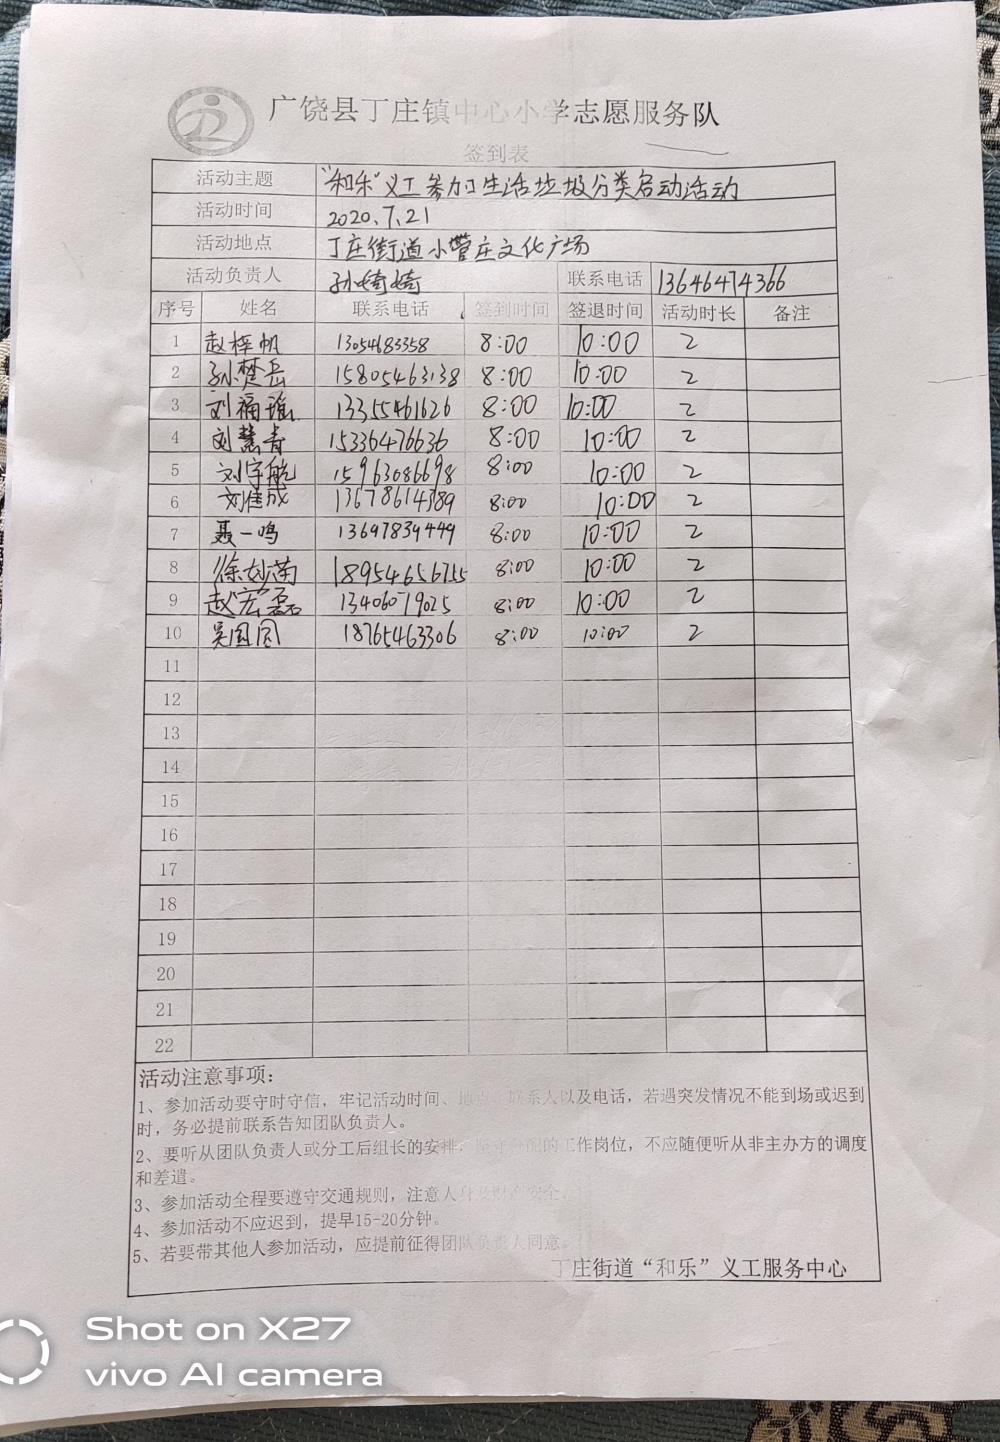 广饶县丁庄镇中心小学志愿服务队
签到表
活动主题 “和乐”义工参加生活垃圾分类启动活动
活动时间 2020.7.21
活动地点 丁庄街道小营庄文化广场
活动负责人 孙婍婍 联系电话 13646474366
序号 姓名 联系电话 签到时间 签退时间 活动时长 备注
1 赵梓帆 13054683358 8:00 10:00 2
2 孙楚岳 15805463138 8:00 10:00 2
3 刘福 13355461626 8:00 10:00 2
4 刘慧青 15336476636 8:00 10:00 2
5 刘宇航 15963086698 8:00 10:00 2
6 刘佳成 13678614389 8:00 10:00 2
7 聂一鸣 13697839449 8:00 10:00 2
8 徐妙菡 18954656755 8:00 10:00 2
9 赵宏磊 13406079025 8:00 10:00 2
10 吴囯囡 18765463306 8:00 10:00 2
11
12
13
14
15
16
17
18
19
20
21
22
活动注意事项:
1、参加活动要守时守信，牢记活动时间、地点、联系人以及电话，若遇突发情况不能到场或迟到
时，务必提前联系告知团队负责人。
2、要听从团队负责人或分工后组长的安排，坚守分配的工作岗位，不应随便听从非主办方的调度
和差遣。
3、参加活动全程要遵守交通规则，注意人身及财产安全。
4、参加活动不应迟到，提早15-20分钟。
5、若要带其他人参加活动，应提前征得团队负责人同意。
丁庄街道“和乐”义工服务中心
Shot on X27
vivo AI camera